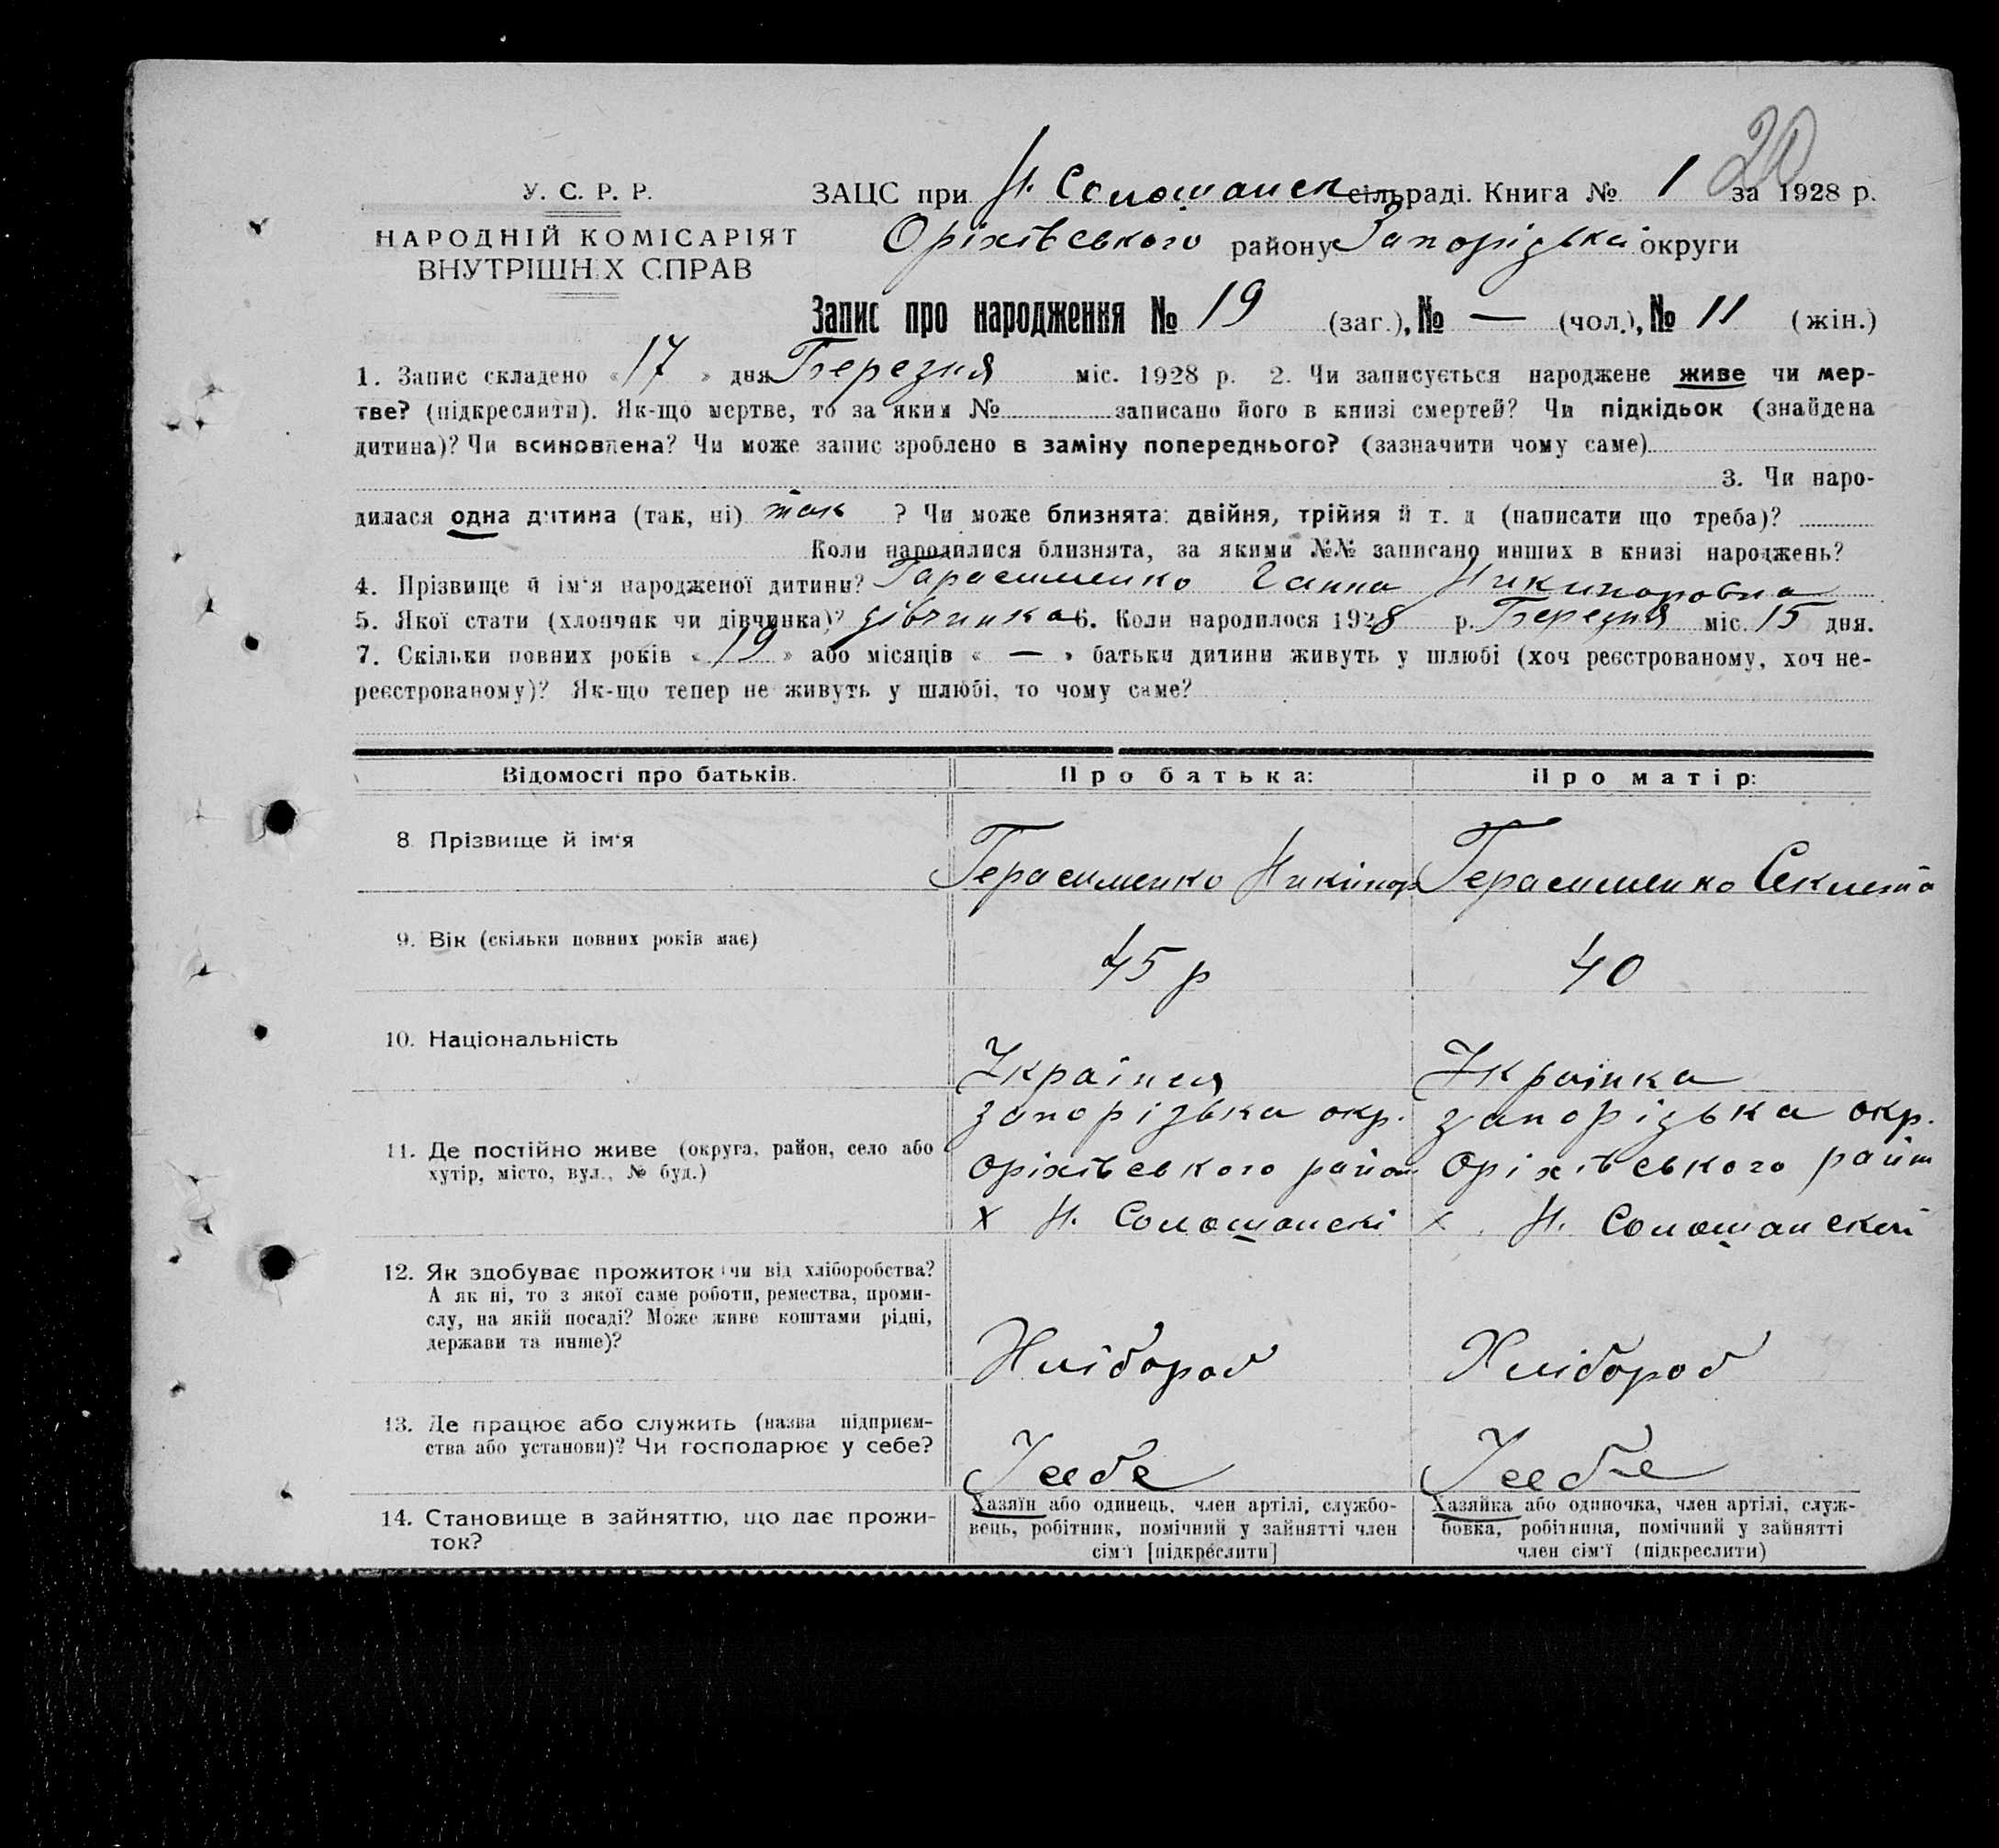 20
У. С. Р. Р.
НАРОДНІЙ КОМІСАРІЯТ
ВНУТРІШНІХ СПРАВ
ЗАЦС при Н. Солошанск сільраді. Книга № 1 за 1928 р.
Оріхівського району Запорізькі округи
Запис про народження № 19 (заг.), № — (чол.), № 11 (жін.)
1. Запис складено «17» дня Березня міс. 1928 р. 2. Чи записується народжене живе чи мер-
тве? (підкреслити). Як-що мертве, то за яким № записано його в книзі смертей? Чи підкідьок (знайдена
дитина)? Чи всиновлена? Чи може запис зроблено в заміну попереднього? (зазначити чому саме)
3. Чи наро-
дилася одна дитина (так, ні) так ? Чи може близнята: двійня, трійня й т. д (написати що треба)?
Коли народилися близнята, за якими №№ записано инших в книзі народжень?
4. Прізвище й ім'я народженої дитини? Гарасименко Ганна Никипоровна
5. Якої стати (хлопчик чи дівчинка)? дівчинка 6. Коли народилося 1928 р. Березня міс. 15 дня.
7. Скільки повних років «19» або місяців «—» батьки дитини живуть у шлюбі (хоч реєстрованому, хоч не-
реєстрованому)? Як-що тепер не живуть у шлюбі, то чому саме?
Відомості про батьків. Про батька: Про матір:
8 Прізвище й ім'я
Герасименко Никіпор Герасименко Секлета
9. Вік (скільки повних років має)
45 р 40
10. Національність
Українец Українка
11. Де постійно живе (округа, район, село або
хутір, місто, вул., № буд.)
Запорізька окр. Запорізька окр.
Оріхівського район Оріхівського район
х Н. Солошанскі х. Н. Солошанскій
12. Як здобуває прожиток: чи від хліборобства?
А як ні, то з якої саме роботи, ремества, проми-
слу, на якій посаді? Може живе коштами рідні,
держави та инше)?
Хлібороб Хлібороб
13. Де працює або служить (назва підприєм-
ства або установи)? Чи господарює у себе?
У себе У себе
14. Становище в зайняттю, що дає прожи-
ток?
Хазяїн або одинець, член артілі, службо-
вець, робітник, помічний у зайнятті член
сім'ї [підкреслити]
Хазяйка або одиночка, член артілі, служ-
бовка, робітниця, помічний у зайнятті
член сім'ї (підкреслити)